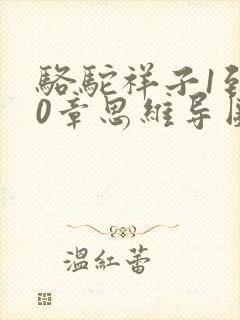 駱駝祥子1到
0章思維导
溫紅蕾